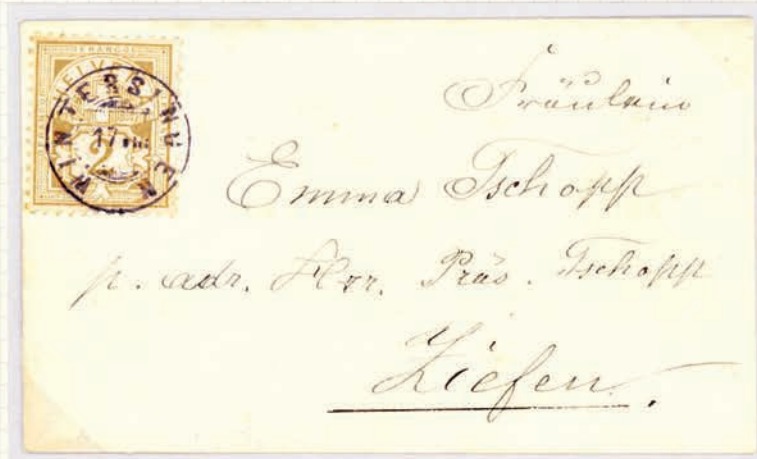 FRANCO
HELV
2
WINTERSINGEN
17
Fräulein
Emma Tschopp
p. adr. Hrr. Präs. Tschopp
Ziefen.